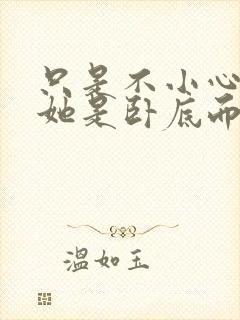 只是不小心
她是卧底而
温如玉